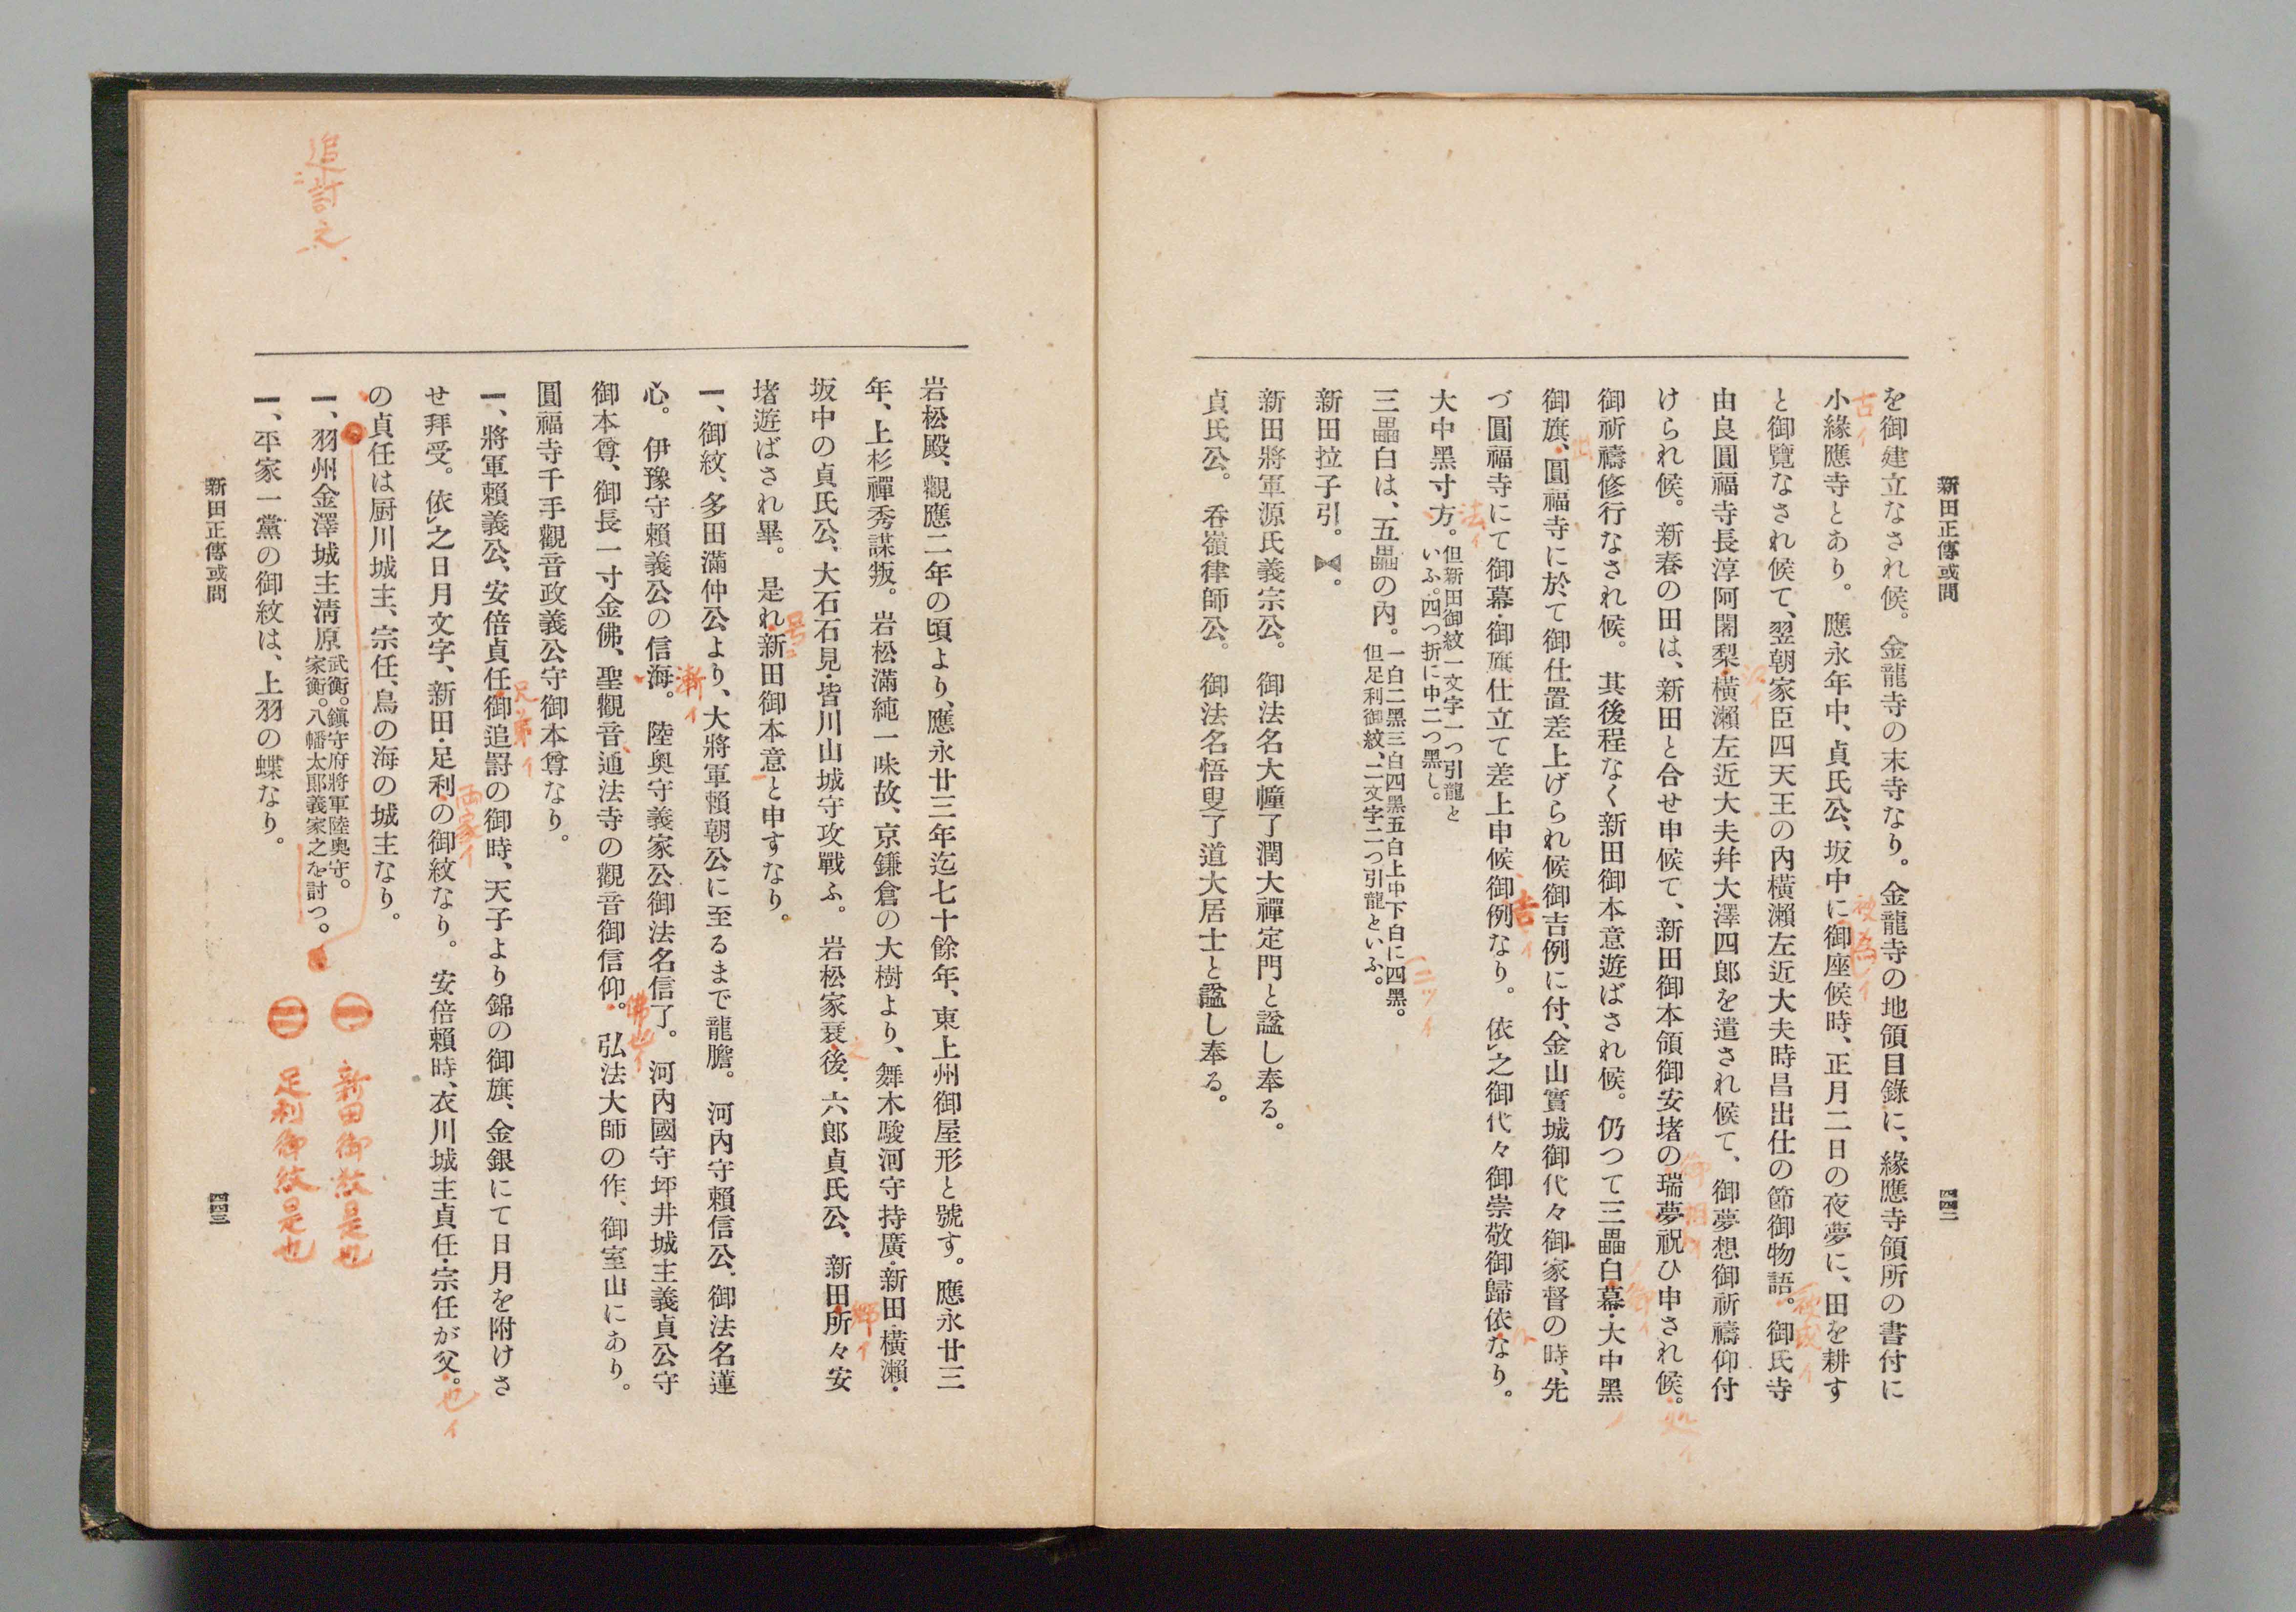 新田正傳或問
四四二
を御建立なされ候。金龍寺の末寺なり。金龍寺の地領目錄に、緣應寺領所の書付に
小緣應寺とあり。應永年中、貞氏公、坂中に御座候時、正月二日の夜夢に、田を耕す
と御覽なされ候て、翌朝家臣四天王の內橫瀨左近大夫時昌出仕の節御物語。御氏寺
由良圓福寺長淳阿闍梨・橫瀨左近大夫幷大澤四郎を遣され候て、御夢想御祈禱仰付
けられ候。新春の田は、新田と合せ申候て、新田御本領御安堵の瑞夢祝ひ申され候。
御祈禱修行なされ候。其後程なく新田御本意遊ばされ候。仍つて三畾白幕・大中黑
御旗、圓福寺に於て御仕置差上げられ候御吉例に付、金山實城御代々御家督の時、先
づ圓福寺にて御幕・御旗仕立て差上申候御例なり。依㆑之御代々御崇敬御歸依なり。
大中黑寸方。但新田御紋一文字一つ引龍と
いふ。四つ折に中二つ黑し。
三畾白は、五畾の內。一白二黑三白四黑五白上中下白に四黑。
但足利御紋、二文字二つ引龍といふ。
新田拉子引。⧓。
新田將軍源氏義宗公。御法名大幢了潤大禪定門と諡し奉る。
貞氏公。吞嶺律師公。御法名悟叟了道大居士と諡し奉る。
古イ
被為イ
被成イ
御相イ
処イ
御イ
出
法イ
吉イ
二ツイ
岩松殿、觀應二年の頃より、應永廿三年迄七十餘年、東上州御屋形と號す。應永廿三
年、上杉禪秀謀叛。岩松滿純一味故、京鎌倉の大樹より、舞木駿河守持廣・新田・橫瀨・
坂中の貞氏公、大石石見・皆川山城守攻戰ふ。岩松家衰後、六郎貞氏公、新田所々安
堵遊ばされ畢。是れ新田御本意と申すなり。
一、御紋、多田滿仲公より、大將軍賴朝公に至るまで龍膽。河內守賴信公、御法名蓮
心。伊豫守賴義公の信海。陸奧守義家公御法名信了。河內國守坪井城主義貞公守
御本尊、御長一寸金佛、聖觀音通法寺の觀音御信仰。弘法大師の作、御室山にあり。
圓福寺千手觀音政義公守御本尊なり。
一、將軍賴義公、安倍貞任御追罸の御時、天子より錦の御旗、金銀にて日月を附けさ
せ拜受。依㆑之日月文字、新田・足利の御紋なり。安倍賴時、衣川城主貞任・宗任が父。
の貞任は厨川城主、宗任、鳥の海の城主なり。
一、羽州金澤城主淸原武衡。鎭守府將軍陸奧守。
家衡。八幡太郎義家之を討つ。
一、平家一黨の御紋は、上羽の蝶なり。
追討之
郷イ
之
号ニ
漸イ
佛也イ
兄弟イ
両家イ
也イ
㊀ 新田御紋是也
㊁ 足利御紋是也
新田正傳或問
四四三